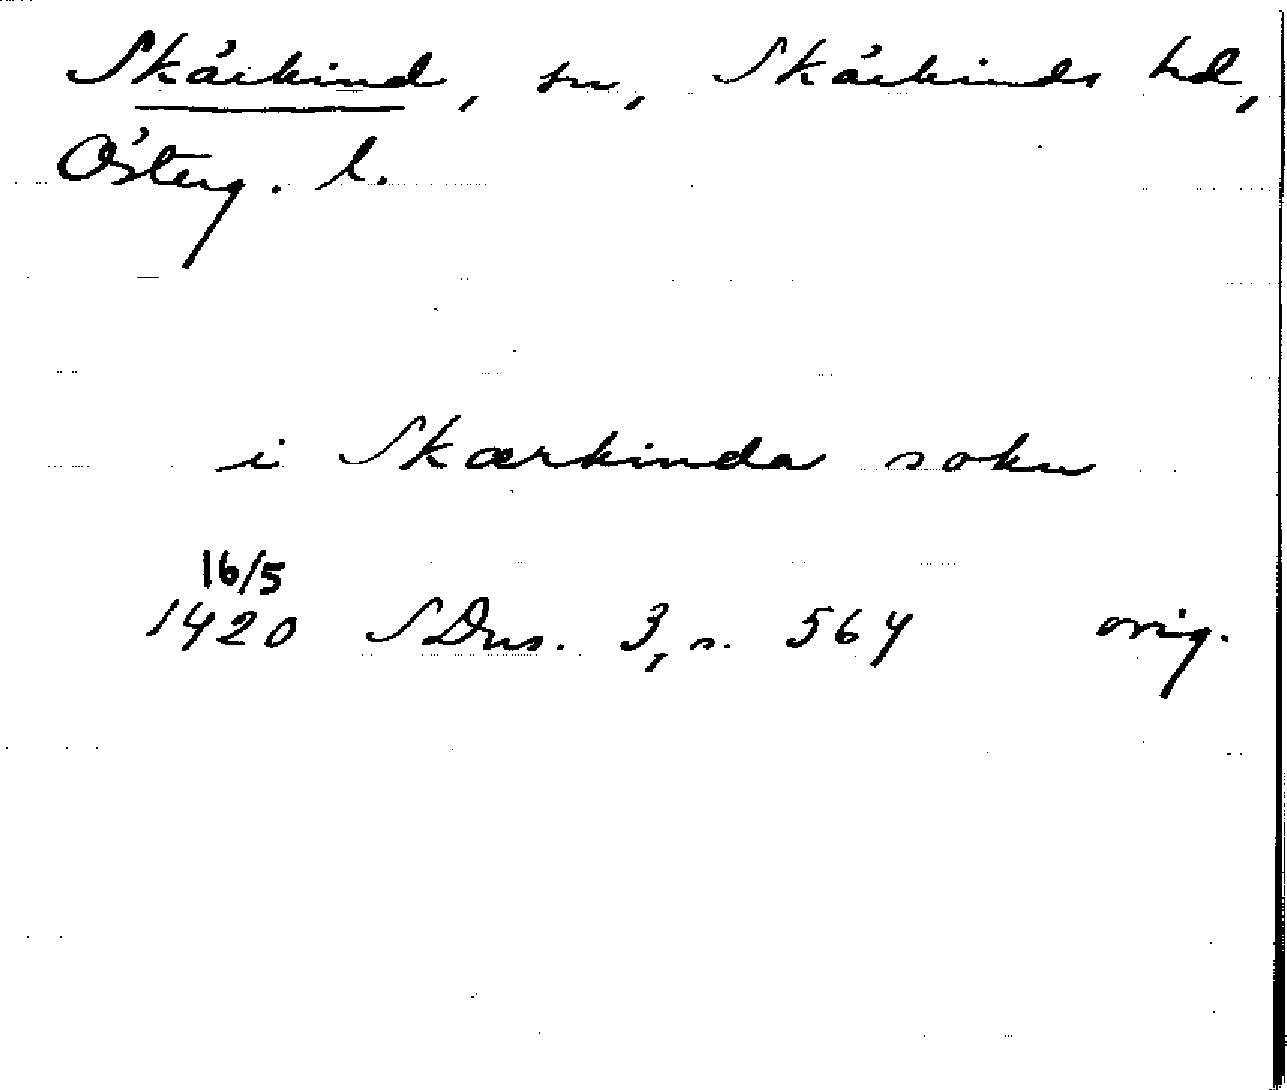 Skärkind, sn, Skärkinds hd,
Österg. l.
i Skærkinda sokn
16/5
1420 SDns. 3, s. 564 orig.